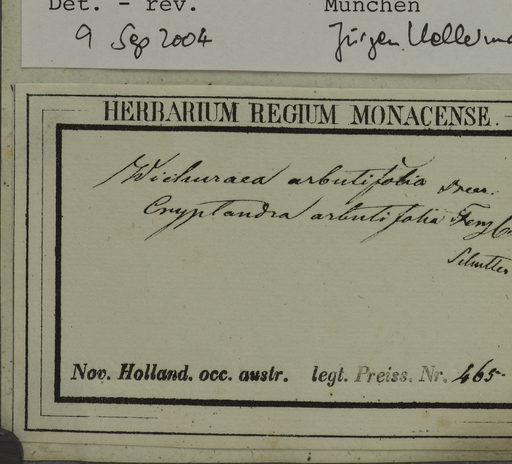 Det. - rev. München
9 Sep 2004 Jürgen Kellerma
HERBARIUM REGIUM MONACENSE.
Wichuraea arbutifolia Steud.
Cryptandra arbutifolia Fenzl
Nov. Holland. occ. austr. legt. Preiss. Nr. 465